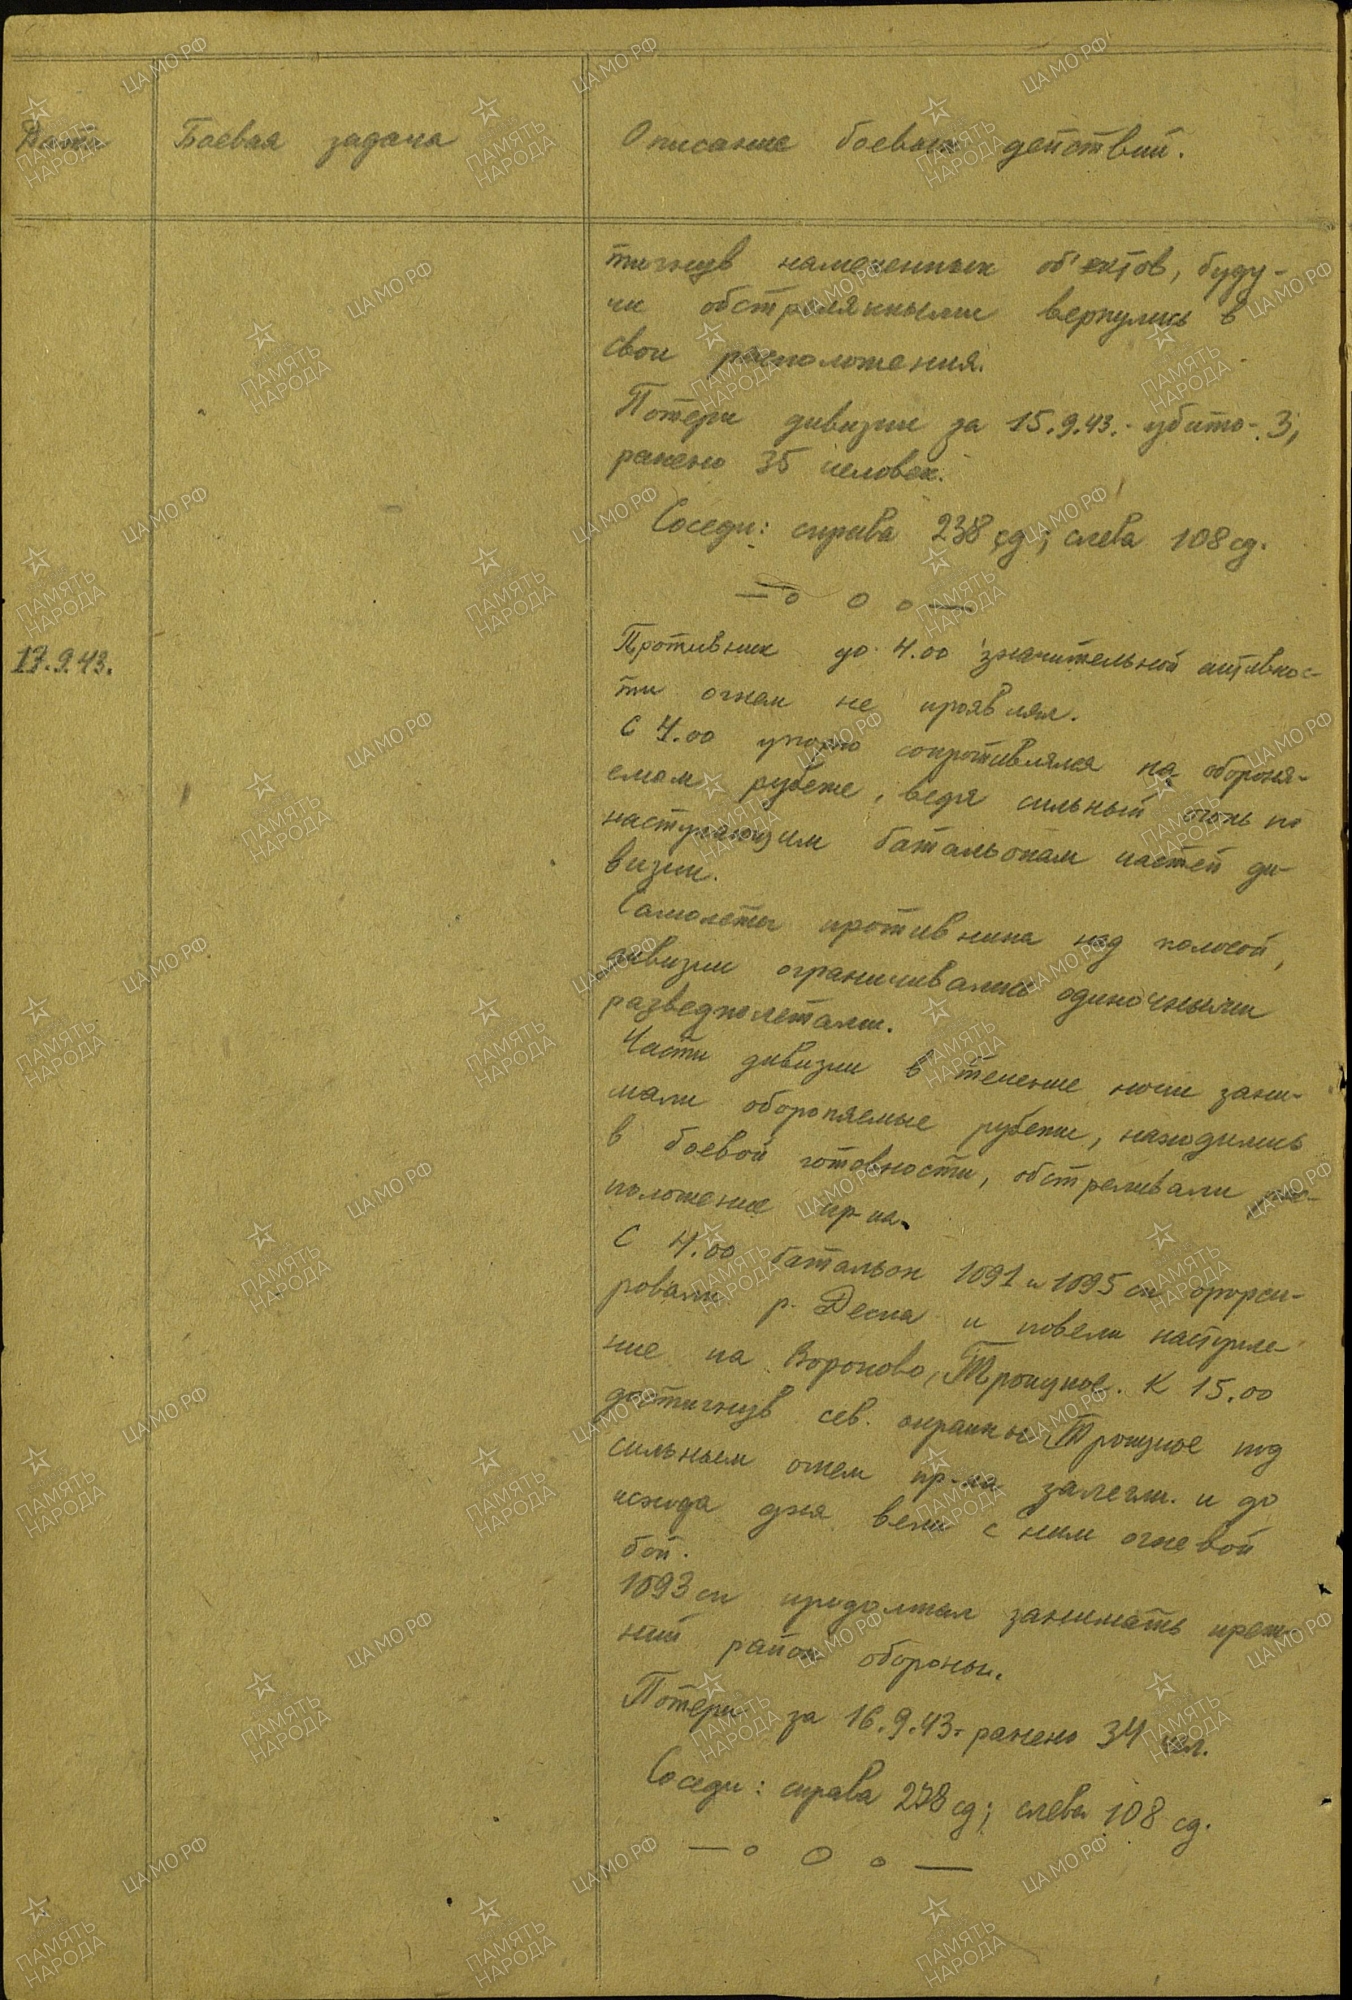 Дата
Боевая задача
Описание боевых действий.
тигнув намеченных об'ектов, буду-
чи обстрелянными вернулись в
свои расположения.
Потери дивизии за 15.9.43.- убито - 3,
ранено 35 человек.
Соседи: справа 238 сд; слева 108 сд.
17.9.43.
Противник до 4.00 значительной активнос-
ти огнем не проявлял.
С 4.00 упорно сопротивлялся на обороня-
емом рубеже, ведя сильный огонь по
наступающим батальонам частей ди-
визии.
Самолеты противника над полосой
дивизии ограничивались одиночными
разведполетами.
Части дивизии в течение ночи зани-
мали обороняемые рубежи, находились
в боевой готовности, обстреливали рас-
положение пр-ка.
С 4.00 батальон 1091 и 1095 сп форси-
ровали р. Десна и повели наступле-
ние на Вороново, Троицкое. К 15.00
достигнув сев. окраины Троицкое под
сильным огнем пр-ка залегли и до
исхода дня вели с ним огневой
бой.
1093 сп продолжал занимать преж-
ний район обороны.
Потери за 16.9.43- ранено 34 чел.
Соседи: справа 238 сд; слева 108 сд.
ПАМЯТЬ НАРОДА
ЦА МО РФ